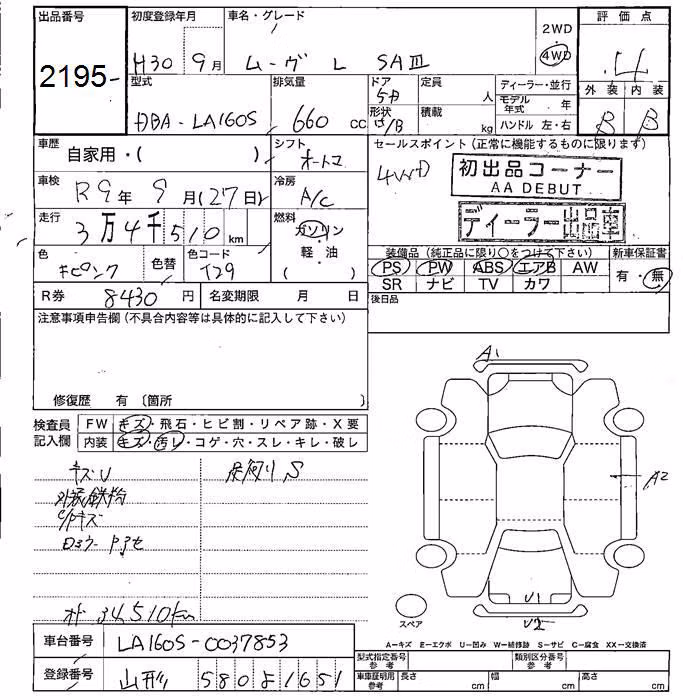 出品番号
2195-
初度登録年月
H30 9月
車名・グレード
ムーヴ L SAⅢ
2WD
4WD
評価点
4
外装 内装
B B
型式
DBA-LA160S
排気量
660 cc
ドア
5D
形状
H/B
定員
人
積載
kg
ディーラー・並行
モデル年式 年
ハンドル 左・右
車歴
自家用・( )
シフト
オートマ
セールスポイント (正常に機能するものに限ります)
4WD
初出品コーナー
AA DEBUT
ディーラー出品車
車検
R9年 9月(27日)
冷房
A/C
走行
3万4千510km
燃料
ガソリン
軽・油
( )
色
色替
色コード
T29
装備品 (純正品に限り○をつけて下さい)
PS PW ABS エアB AW
SR ナビ TV カワ
新車保証書
有・無
R券 8430円
名変期限 月 日
後日品
注意事項申告欄(不具合内容等は具体的に記入して下さい)
修復歴 有 〔箇所 〕
検査員記入欄
FW キズ・飛石・ヒビ割・リペア跡・X要
内装 キズ・汚レ・コゲ・穴・スレ・キレ・破レ
キズU
外装鉄粉
キズ
下廻りS
オド 34,510km
A1
A2
U1
U2
スペア
A=キズ E=エクボ U=凹み W=補修跡 S=サビ C=腐食 XX=交換済
車台番号 LA160S-0037853
登録番号 山形 580よ1651
型式指定番号 参考
類別区分番号 参考
車庫証明用 参考
長さ cm
幅 cm
高さ cm